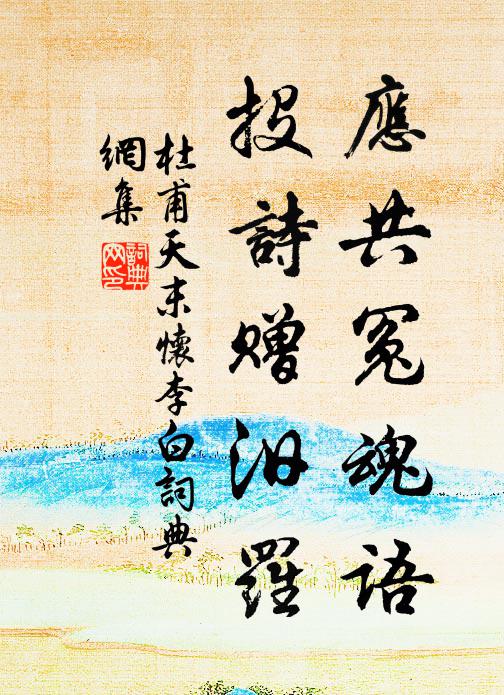 應共冤魂語
投詩贈汨羅
杜甫天末懷李白詞典
網集
詞典
网印